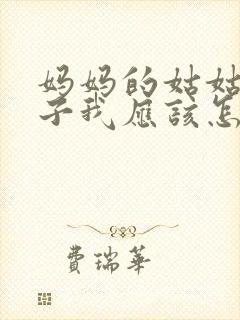 妈妈的姑姑
子我應該怎
費瑞華